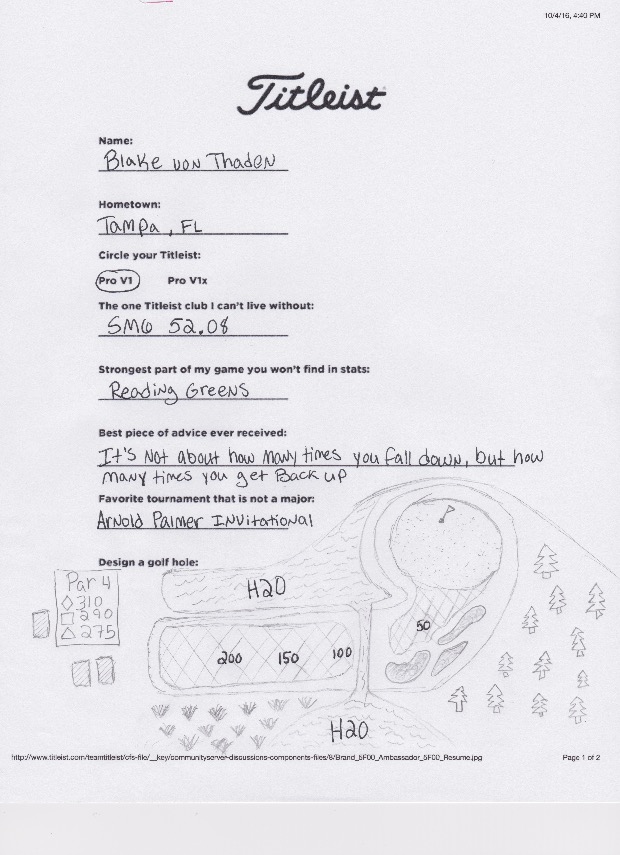 10/4/16, 4:40 PM
Titleist
Name:
Blake von Thaden
Hometown:
Tampa, FL
Circle your Titleist:
Pro V1 Pro V1x
The one Titleist club I can't live without:
SM6 52.08
Strongest part of my game you won't find in stats:
Reading Greens
Best piece of advice ever received:
It's Not about how many times you fall down, but how
many times you get Back up
Favorite tournament that is not a major:
Arnold Palmer Invitational
Design a golf hole:
Par 4
310
290
275
H2O
50
200 150 100
H2O
http://www.titleist.com/teamtitleist/cfs-file/__key/communityserver-discussions-components-files/8/Brand_5F00_Ambassador_5F00_Resume.jpg Page 1 of 2